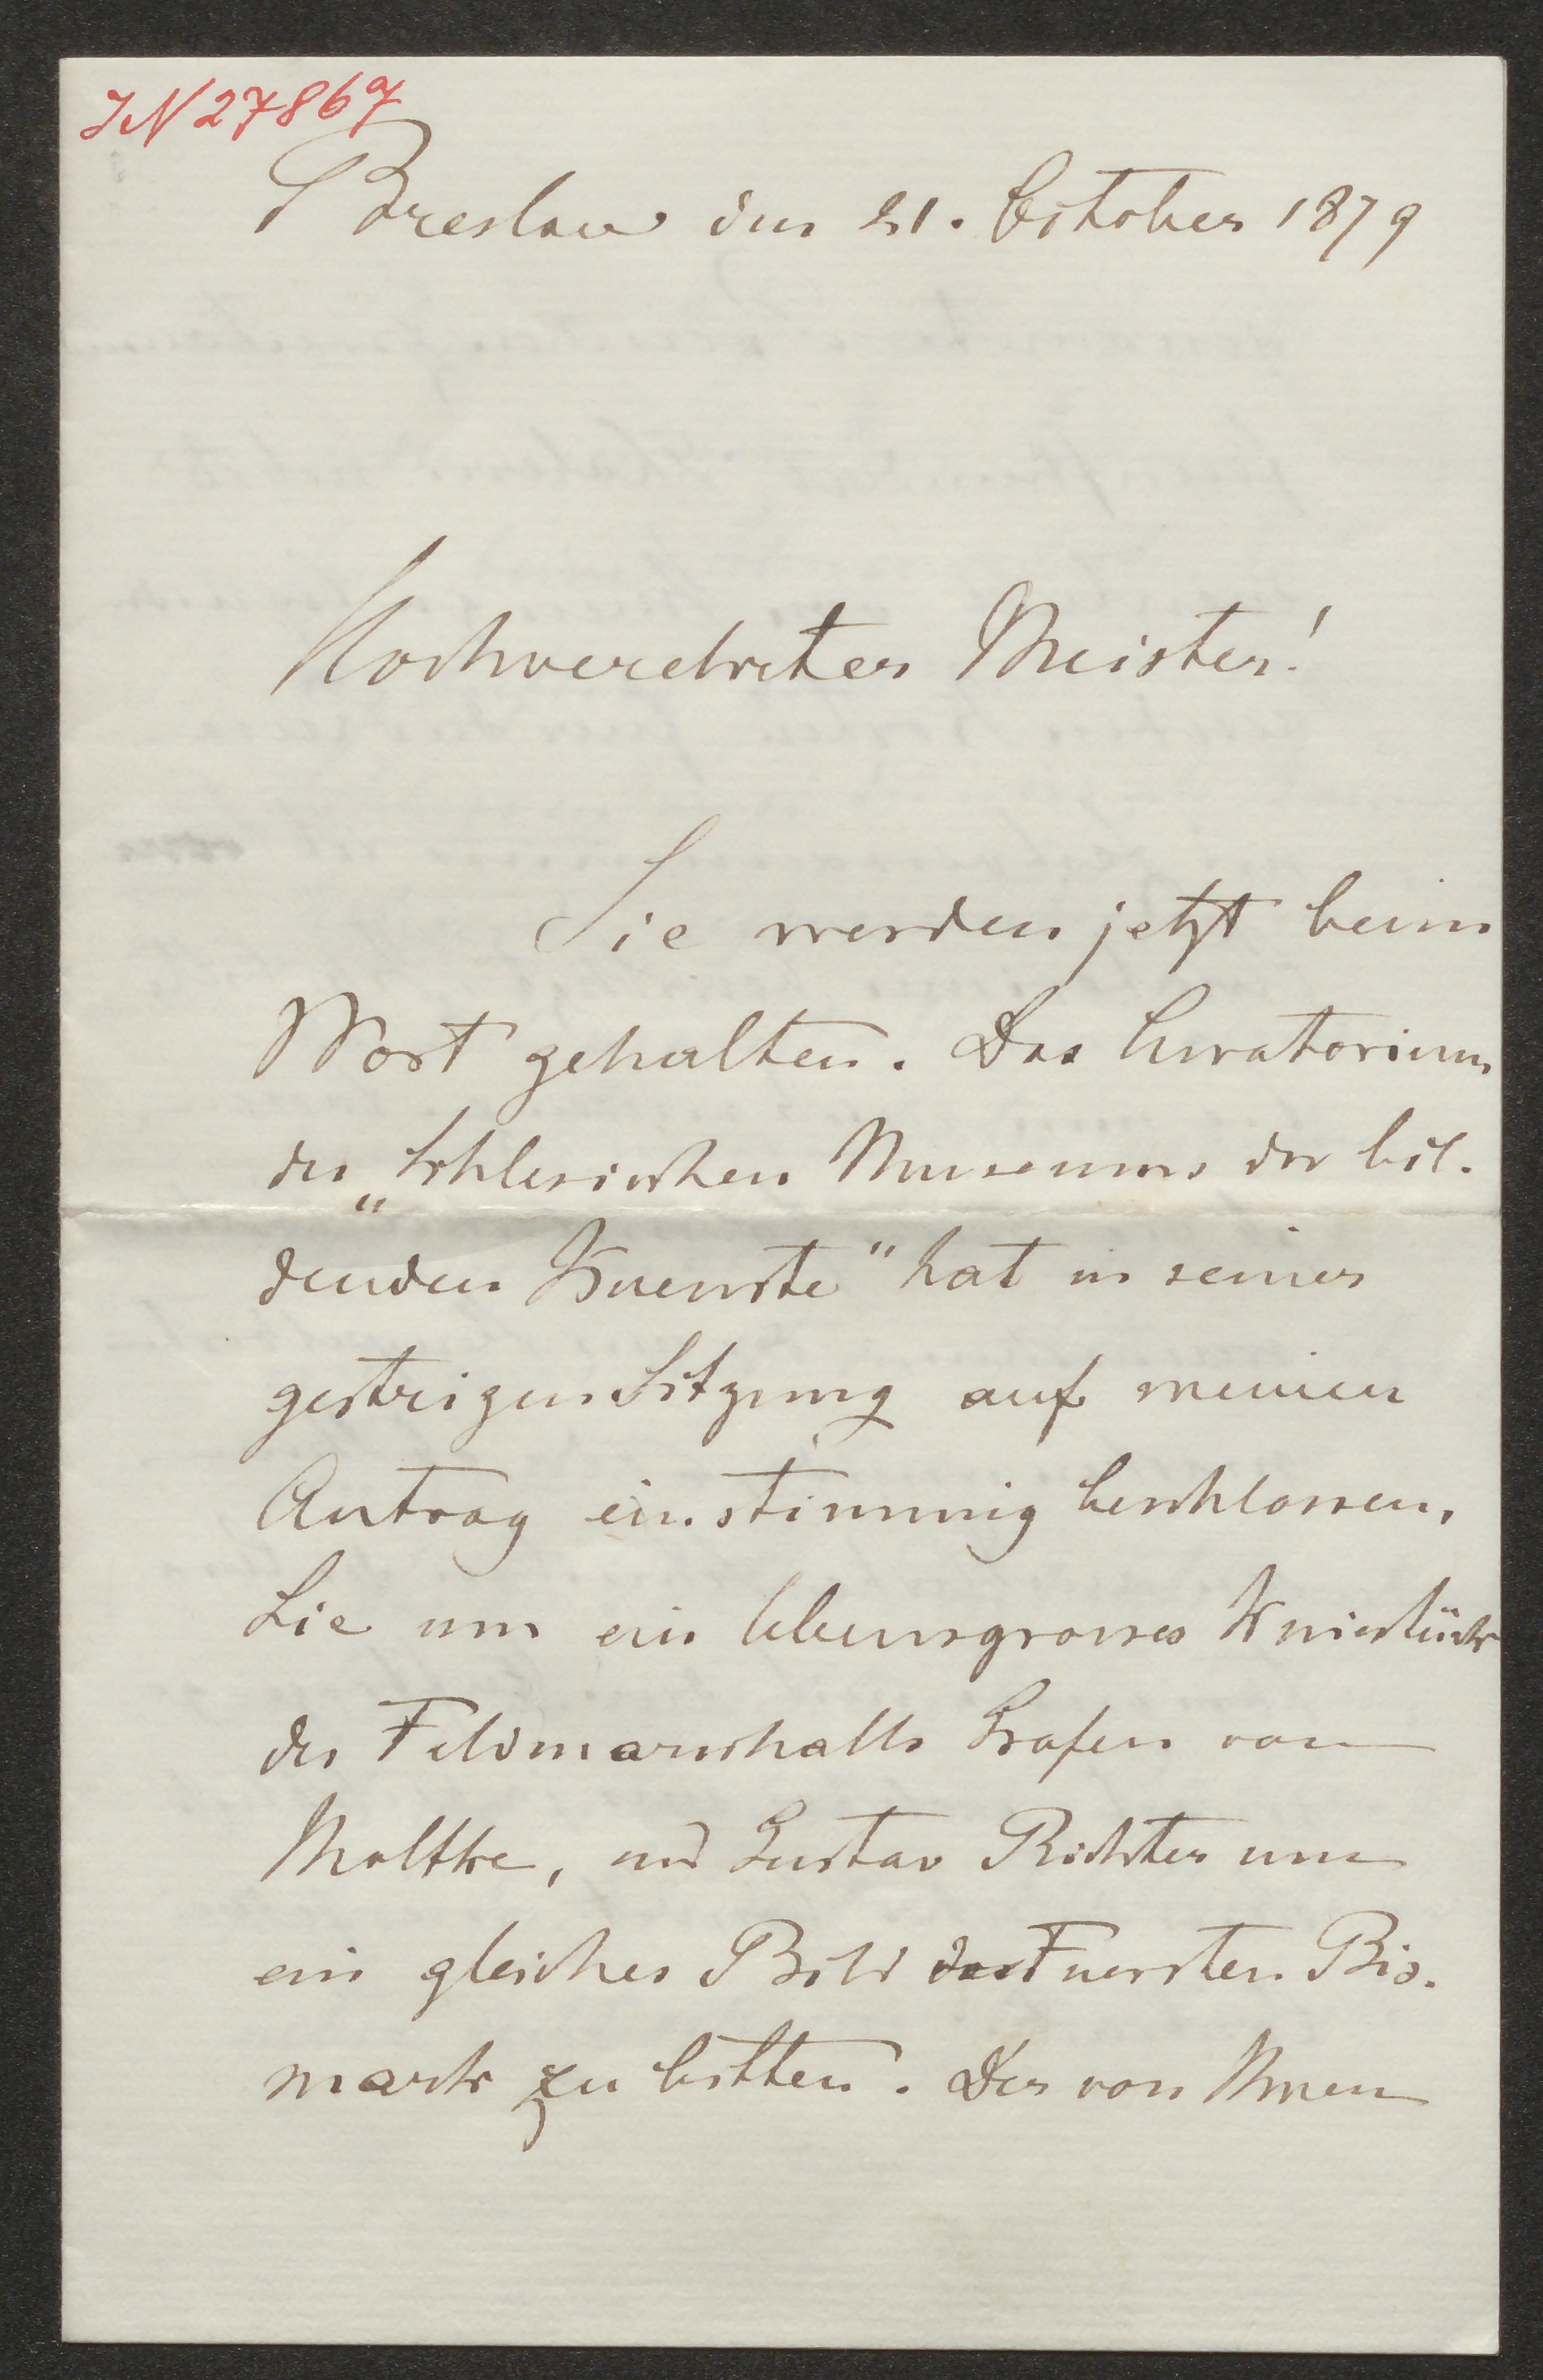 IN 27867
Breslau den 21. October 1879
Hochverehrter Meister!
Sie werden jetzt beim
Wort gehalten. Das Curatorium
des „Schlesischen Museums der bil-
denden Kuenste" hat in seiner
gestrigen Sitzung auf meinen
Antrag einstimmig beschlossen,
Sie um ein lebensgrosses Kniestück
des Feldmarschalls Grafen von
Moltke, und Gustav Richter um
ein gleiches Bild des Fuersten Bis-
marck zu bitten. Der von Ihnen